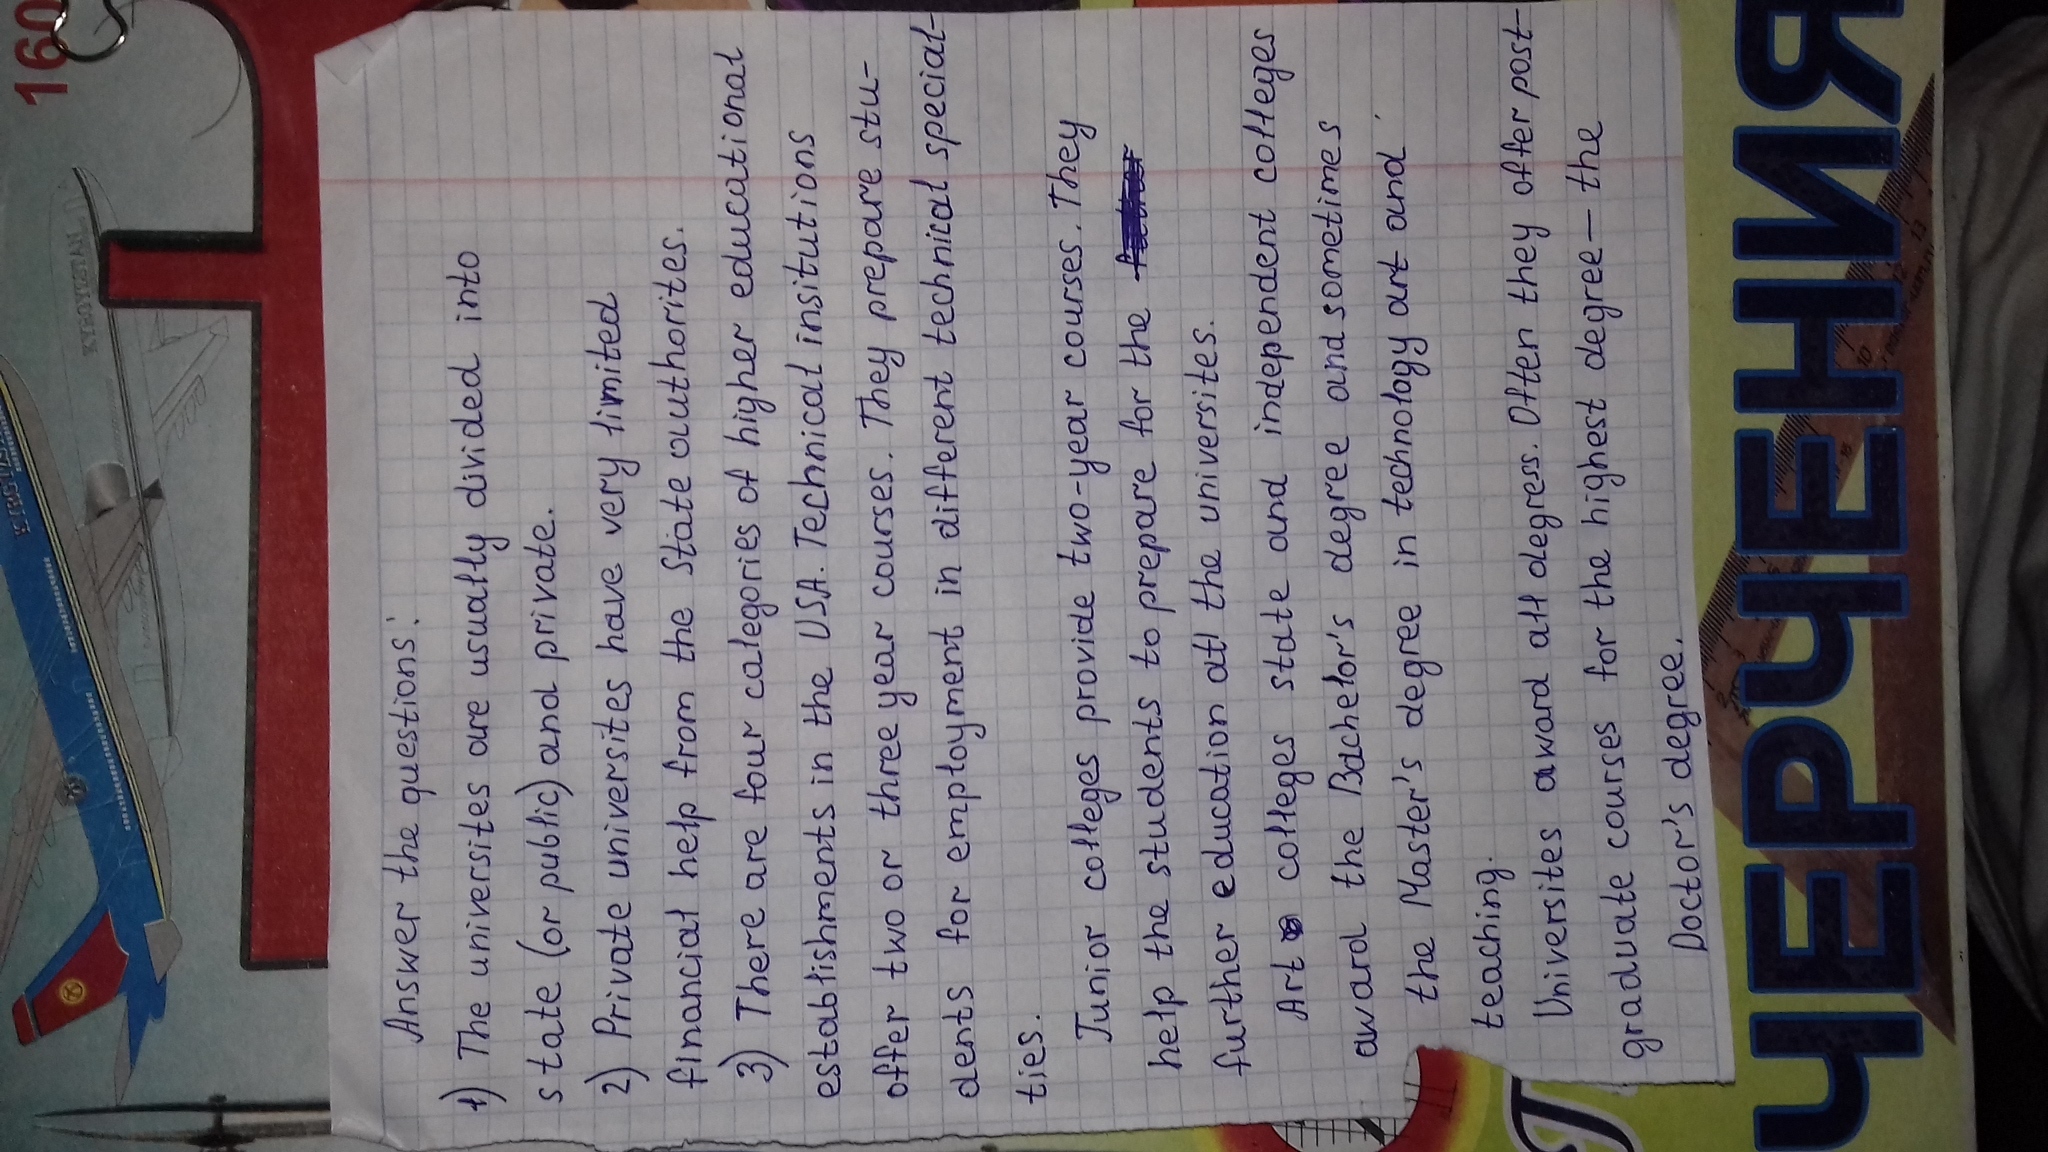 Answer the questions:
1) The universites are usually divided into
state (or public) and private.
2) Private universites have very limited
financial help from the State authorites.
3) There are four categories of higher educational
establishments in the USA. Technical insitutions
offer two or three year courses. They prepare stu-
dents for employment in different technical special-
ties.
Junior colleges provide two-year courses. They
help the students to prepare for the
further education at the universites.
Art colleges state and independent colleges
award the Bachelor's degree and sometimes
the Master's degree in technology art and
teaching.
Universites award all degress. Often they offer post-
graduate courses for the highest degree — the
Doctor's degree.
160
KYRGYZSTAN
ЧЕРЧЕНИЯ